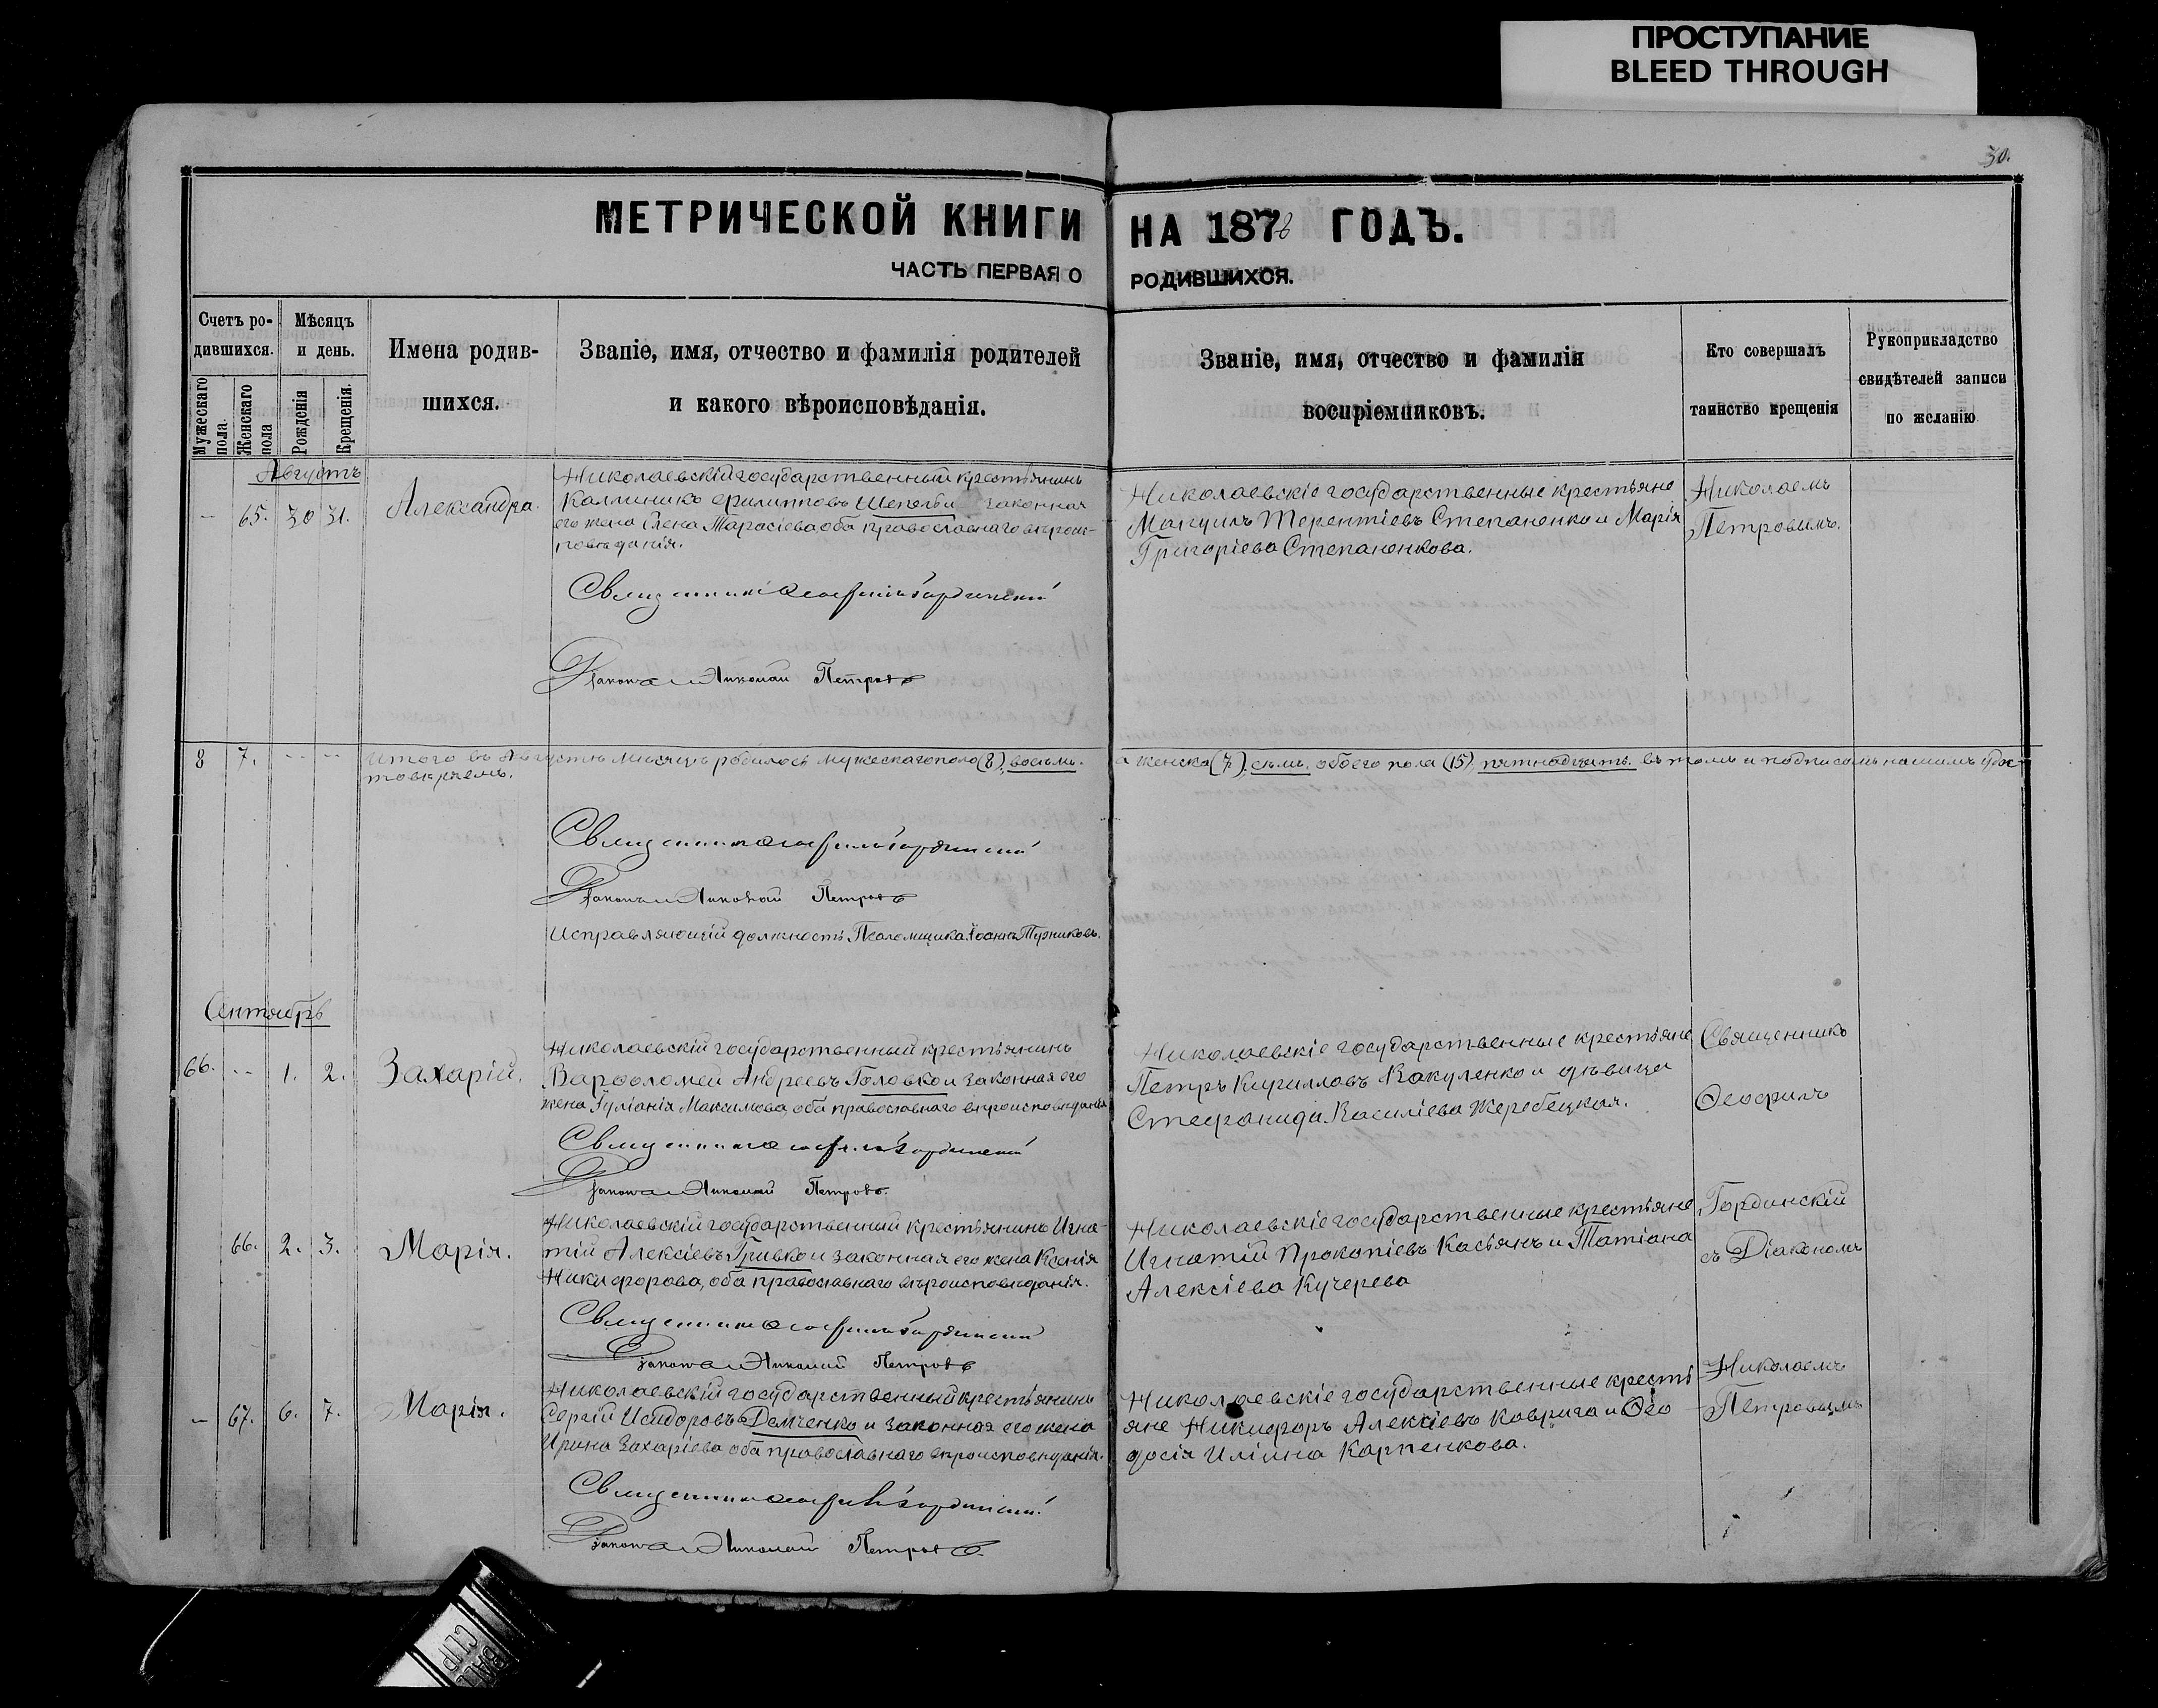 ПРОСТУПАНИЕ
BLEED THROUGH
30.
МЕТРИЧЕСКОЙ КНИГИ НА 1878 ГОДЪ.
ЧАСТЬ ПЕРВАЯ О РОДИВШИХСЯ.
Счетъ ро-
дившихся.
Мужескаго
пола.
Женскаго
пола
Мѣсяцъ
и день.
Рожденія
Крещенія.
Имена родив-
шихся.
Званіе, имя, отчество и фамилія родителей
и какого вѣроисповѣданія.
Званіе, имя, отчество и фамилія
воспріемниковъ.
Кто совершалъ
таинство крещенія
Рукоприкладство
свидѣтелей записи
по желанію
Августъ
– 65. 30 31. Александра.
Николаевскій государственный крестьянинъ
Каллиникъ Филипповъ законная
его жена Елена Тарасіева, оба православнаго вѣроис-
повѣданія.
Николаевскіе государственные крестьяне
Терентіевъ Степаненко и Марія
Григоріева Степаненкова.
Николаемъ
Петровымъ.
Священникъ Ѳеофилъ Гординскій
Діаконъ Николай Петровъ
8 7. -- -- Итого въ Августѣ мѣсяцѣ родилось мужескаго пола (8), восемь. а женска (7), семь, обоего пола (15), пятнадцать. въ томъ и подписомъ нашимъ удос-
товѣряемъ.
Священникъ Ѳеофилъ Гординскій
Діаконъ Николай Петровъ
Исправляющій должность Псаломщика Іоаннъ Турниковъ.
Сентябрь
66. -- 1. 2. Захарій.
Николаевскій государственный крестьянинъ
Варѳоломей Андреевъ Головко и законная его
жена Іуліанія Максимова, оба православнаго вѣроисповѣданія
Николаевскіе государственные крестьяне
Петръ Кирилловъ Вакуленко и дѣвица
Стефанида Василіева Жеребецкая.
Священникъ
Ѳеофилъ
Священникъ Ѳеофилъ Гординскій
Діаконъ Николай Петровъ.
66. 2. 3. Марія.
Николаевскій государственный крестьянинъ Игна-
тій Алексіевъ Гривко и законная его жена Ксенія
Никифорова, оба православнаго вѣроисповѣданія.
Николаевскіе государственные крестьяне
Игнатій Прокопіевъ Касьянъ и Татіана
Алексіева Кучерева
Гординскій
съ Діакономъ
Священникъ Ѳеофилъ Гординскій
Діаконъ Николай Петровъ
– 67. 6. 7. Марія.
Николаевскій государственный крестьянинъ
Сергій Исидоровъ Демченко и законная его жена
Ирина Захаріева оба православнаго вѣроисповѣданія.
Николаевскіе государственные кресть
яне Никифоръ Алексіевъ Коврига и Ѳео
досія Иліина Карпенкова.
Николаемъ
Петровымъ
Священникъ Ѳеофилъ Гординскій.
Діаконъ Николай Петровъ.